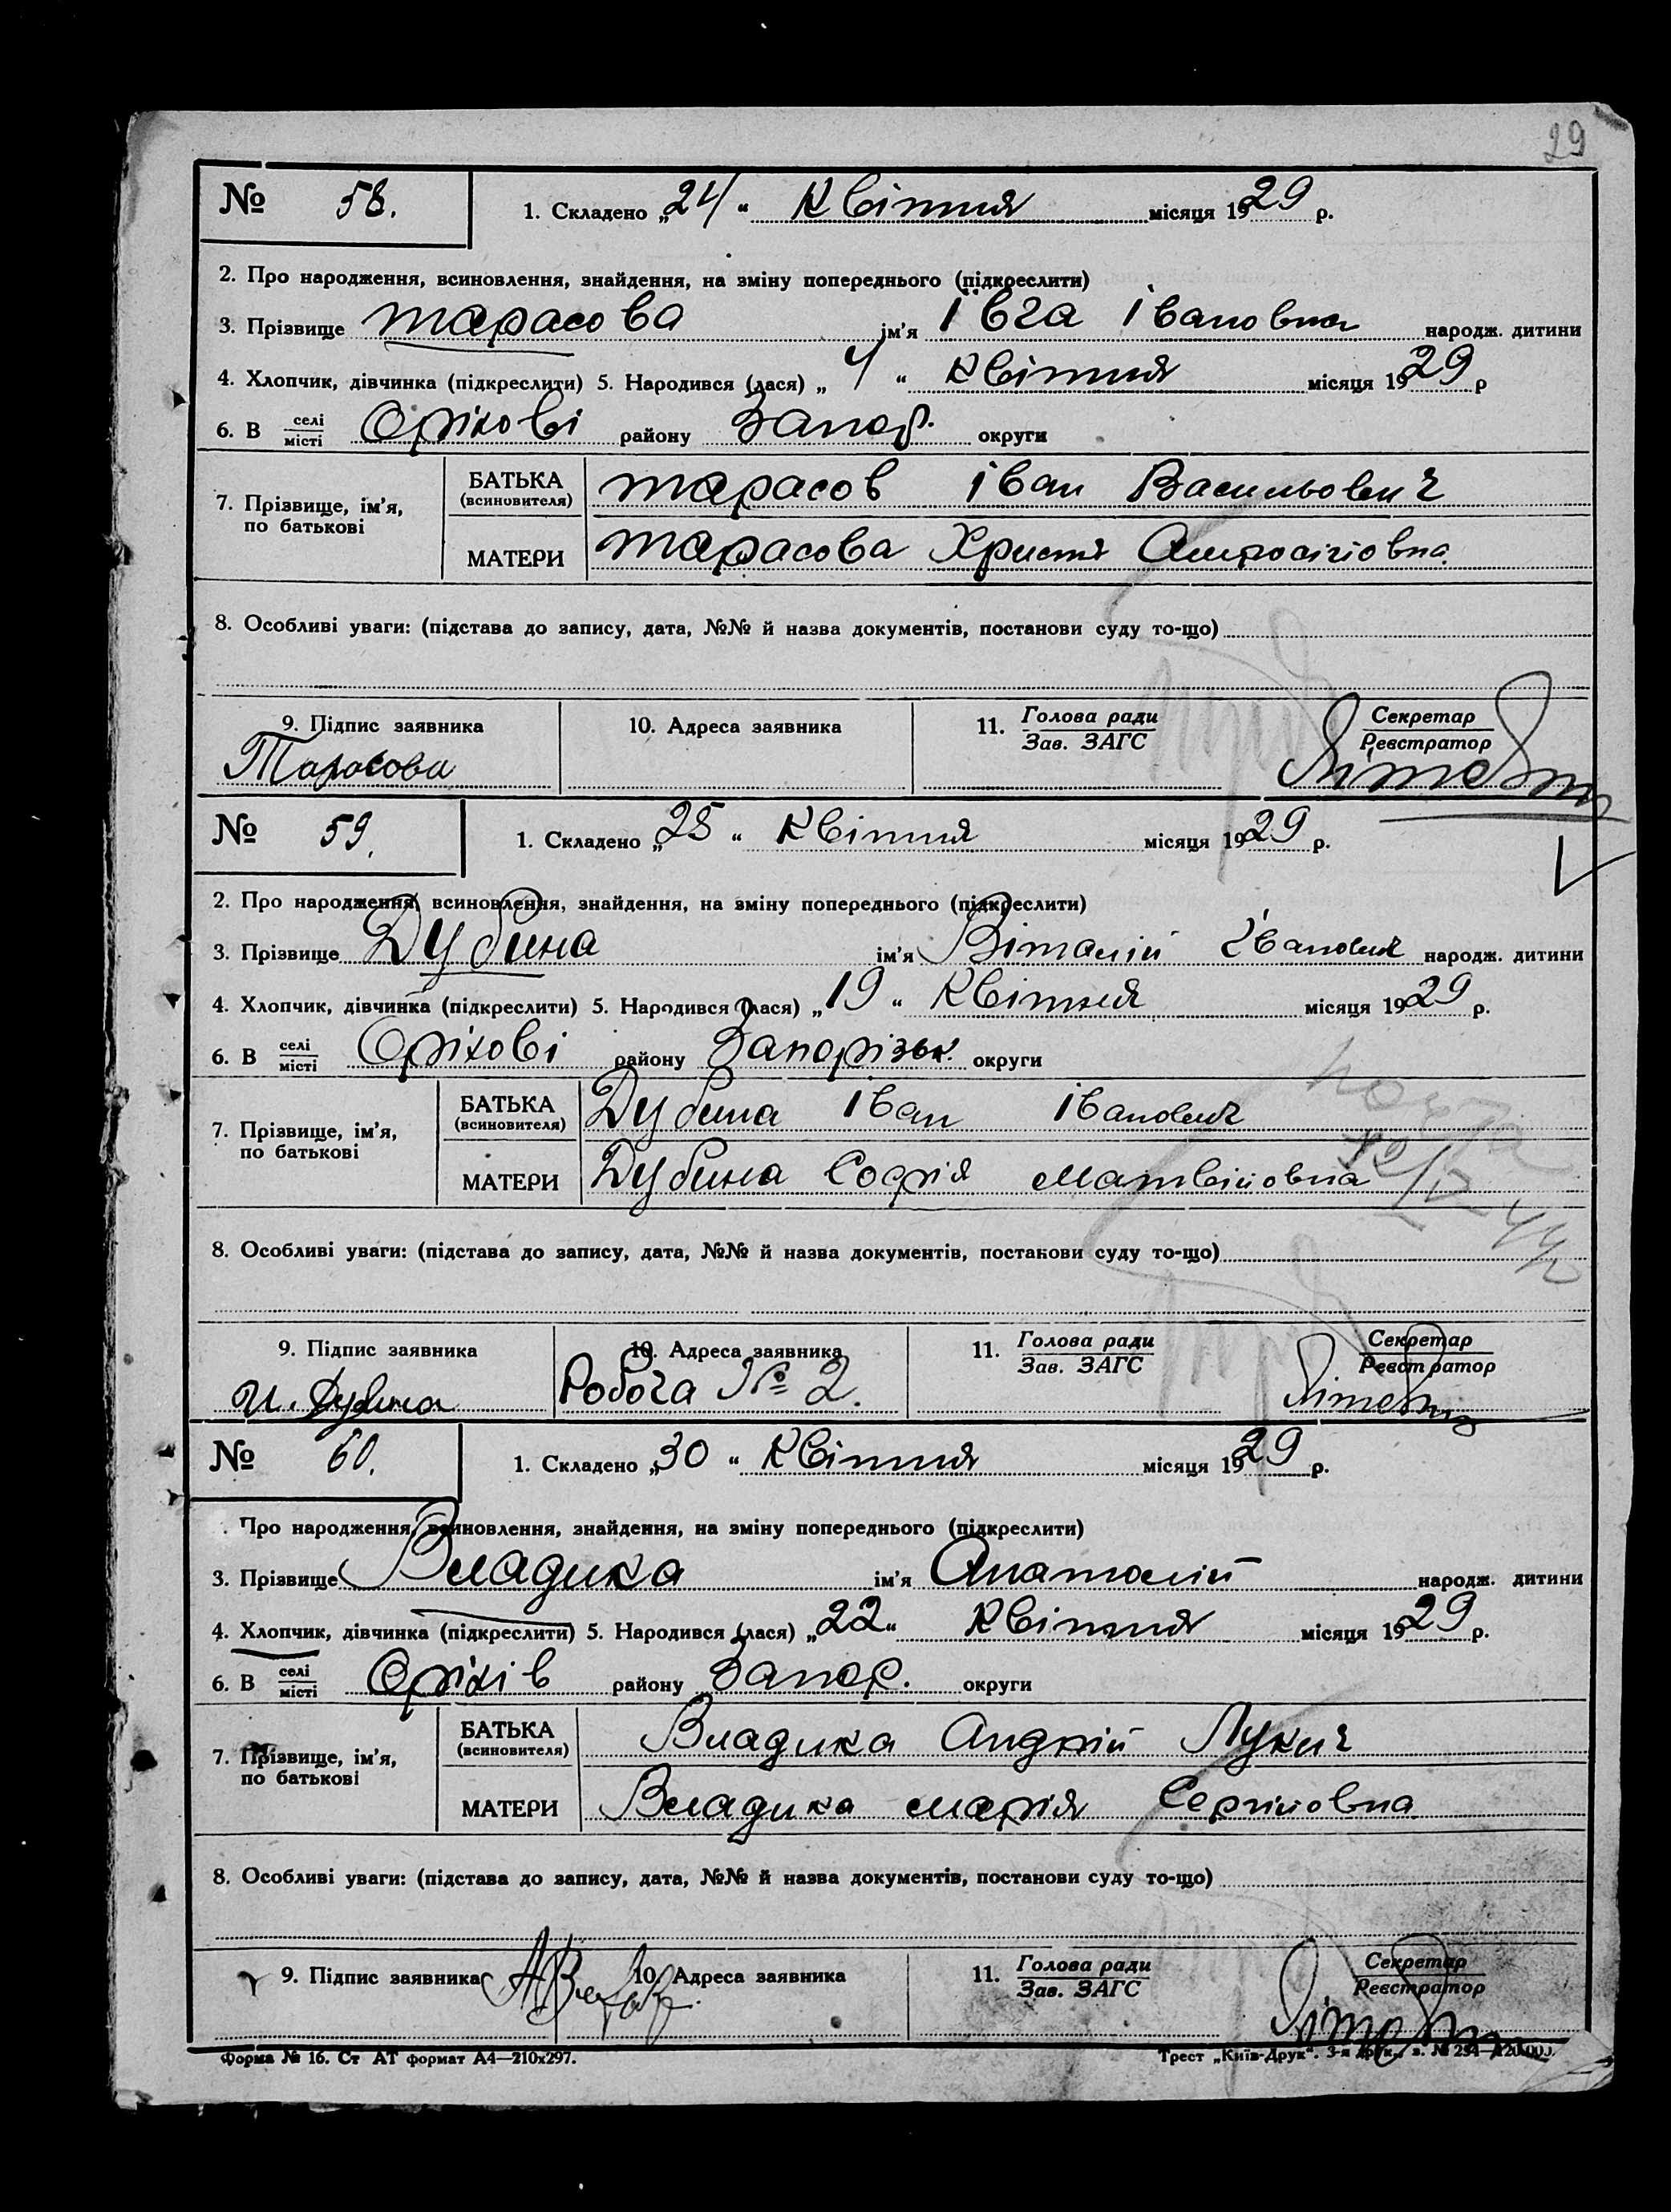 29
№ 58. 1. Складено „24“ Квітня місяця 1929 р.
2. Про народження, всиновлення, знайдення, на зміну попереднього (підкреслити)
3. Прізвище Тарасова ім'я Івга Івановна народж. дитини
4. Хлопчик, дівчинка (підкреслити) 5. Народився (лася) „4“ Квітня місяця 1929 р
6. В селі/місті Оріхові району Запор. округи
7. Прізвище, ім'я, по батькові
БАТЬКА (всиновителя) Тарасов Іван Васильович
МАТЕРИ Тарасова Христя
8. Особливі уваги: (підстава до запису, дата, №№ й назва документів, постанови суду то-що)
9. Підпис заявника 10. Адреса заявника 11. Голова ради/Зав. ЗАГС Секретар/Реєстратор
Тарасова
№ 59. 1. Складено „25“ Квітня місяця 1929 р.
2. Про народження, всиновлення, знайдення, на зміну попереднього (підкреслити)
3. Прізвище Дубина ім'я Віталій Іванович народж. дитини
4. Хлопчик, дівчинка (підкреслити) 5. Народився (лася) „19“ Квітня місяця 1929 р.
6. В селі/місті Оріхові району Запорізьк. округи
7. Прізвище, ім'я, по батькові
БАТЬКА (всиновителя) Дубина Іван Іванович
МАТЕРИ Дубина Софія Матвійовна
8. Особливі уваги: (підстава до запису, дата, №№ й назва документів, постанови суду то-що)
9. Підпис заявника 10. Адреса заявника 11. Голова ради/Зав. ЗАГС Секретар/Реєстратор
И. Дубина Робоча № 2.
№ 60. 1. Складено „30“ Квітня місяця 1929 р.
Про народження, всиновлення, знайдення, на зміну попереднього (підкреслити)
3. Прізвище Владика ім'я Анатолій народж. дитини
4. Хлопчик, дівчинка (підкреслити) 5. Народився (лася) „22“ Квітня місяця 1929 р.
6. В селі/місті Оріхів району Запор. округи
7. Прізвище, ім'я, по батькові
БАТЬКА (всиновителя) Владика Андрій Лукич
МАТЕРИ Владика Марія Сергійовна
8. Особливі уваги: (підстава до запису, дата, №№ й назва документів, постанови суду то-що)
9. Підпис заявника 10. Адреса заявника 11. Голова ради/Зав. ЗАГС Секретар/Реєстратор
Форма № 16. Ст АТ формат А4—210х297. Трест „Київ-Друк“. 3-я друк.